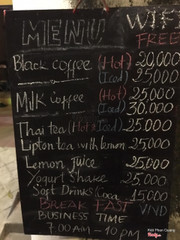 MENU WIFI FREE
Black coffee (Hot) 20,000
(Iced) 25.000
Milk coffee (Hot) 25.000
(Iced) 30.000
Thai tea (Hot Iced) 25.000
Lipton tea with lemon 25.000
Lemon juice 25.000
Yogurt Shake 25.000
Soft Drinks (Coca 15.000
BREAK FAST VND
BUSINESS TIME
7.00AM - 10 PM